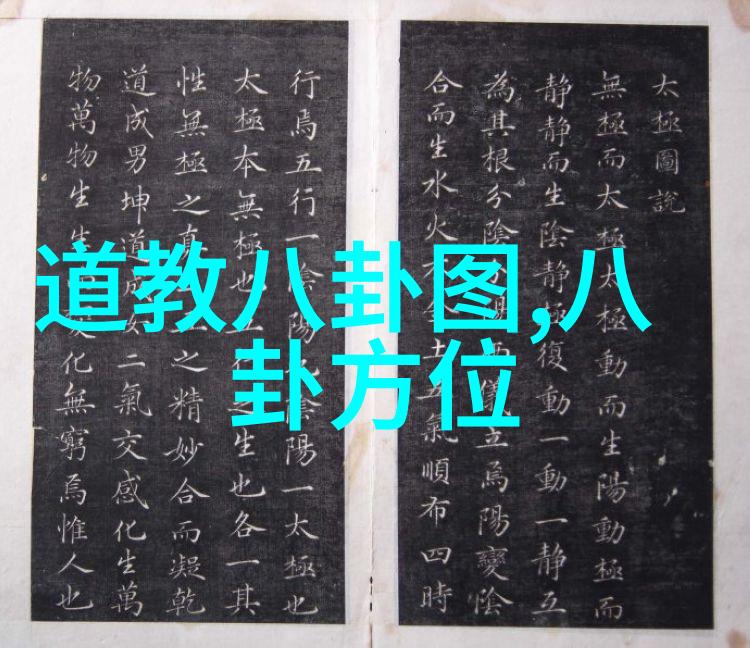 道教八卦图,八
卦方位
太極圖說
無極而太極太極動而生陽動極而
静静而生陰静極復動一動一静互
為其根分陰分陽儀立焉陽變陰
合而生水火土氣順布四時
行焉五行一陰陽陰陽一太極也
太極本無極也行之生也各一其
性無極之真之精妙合而凝乾
道成男坤道成女二氣交感化生萬
物萬物生生化無窮焉惟人也